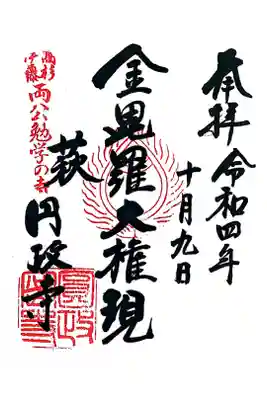 奉拝
令和四年
十月九日
金毘羅大権現
萩
円政寺
高杉
伊藤
両公勉学の寺